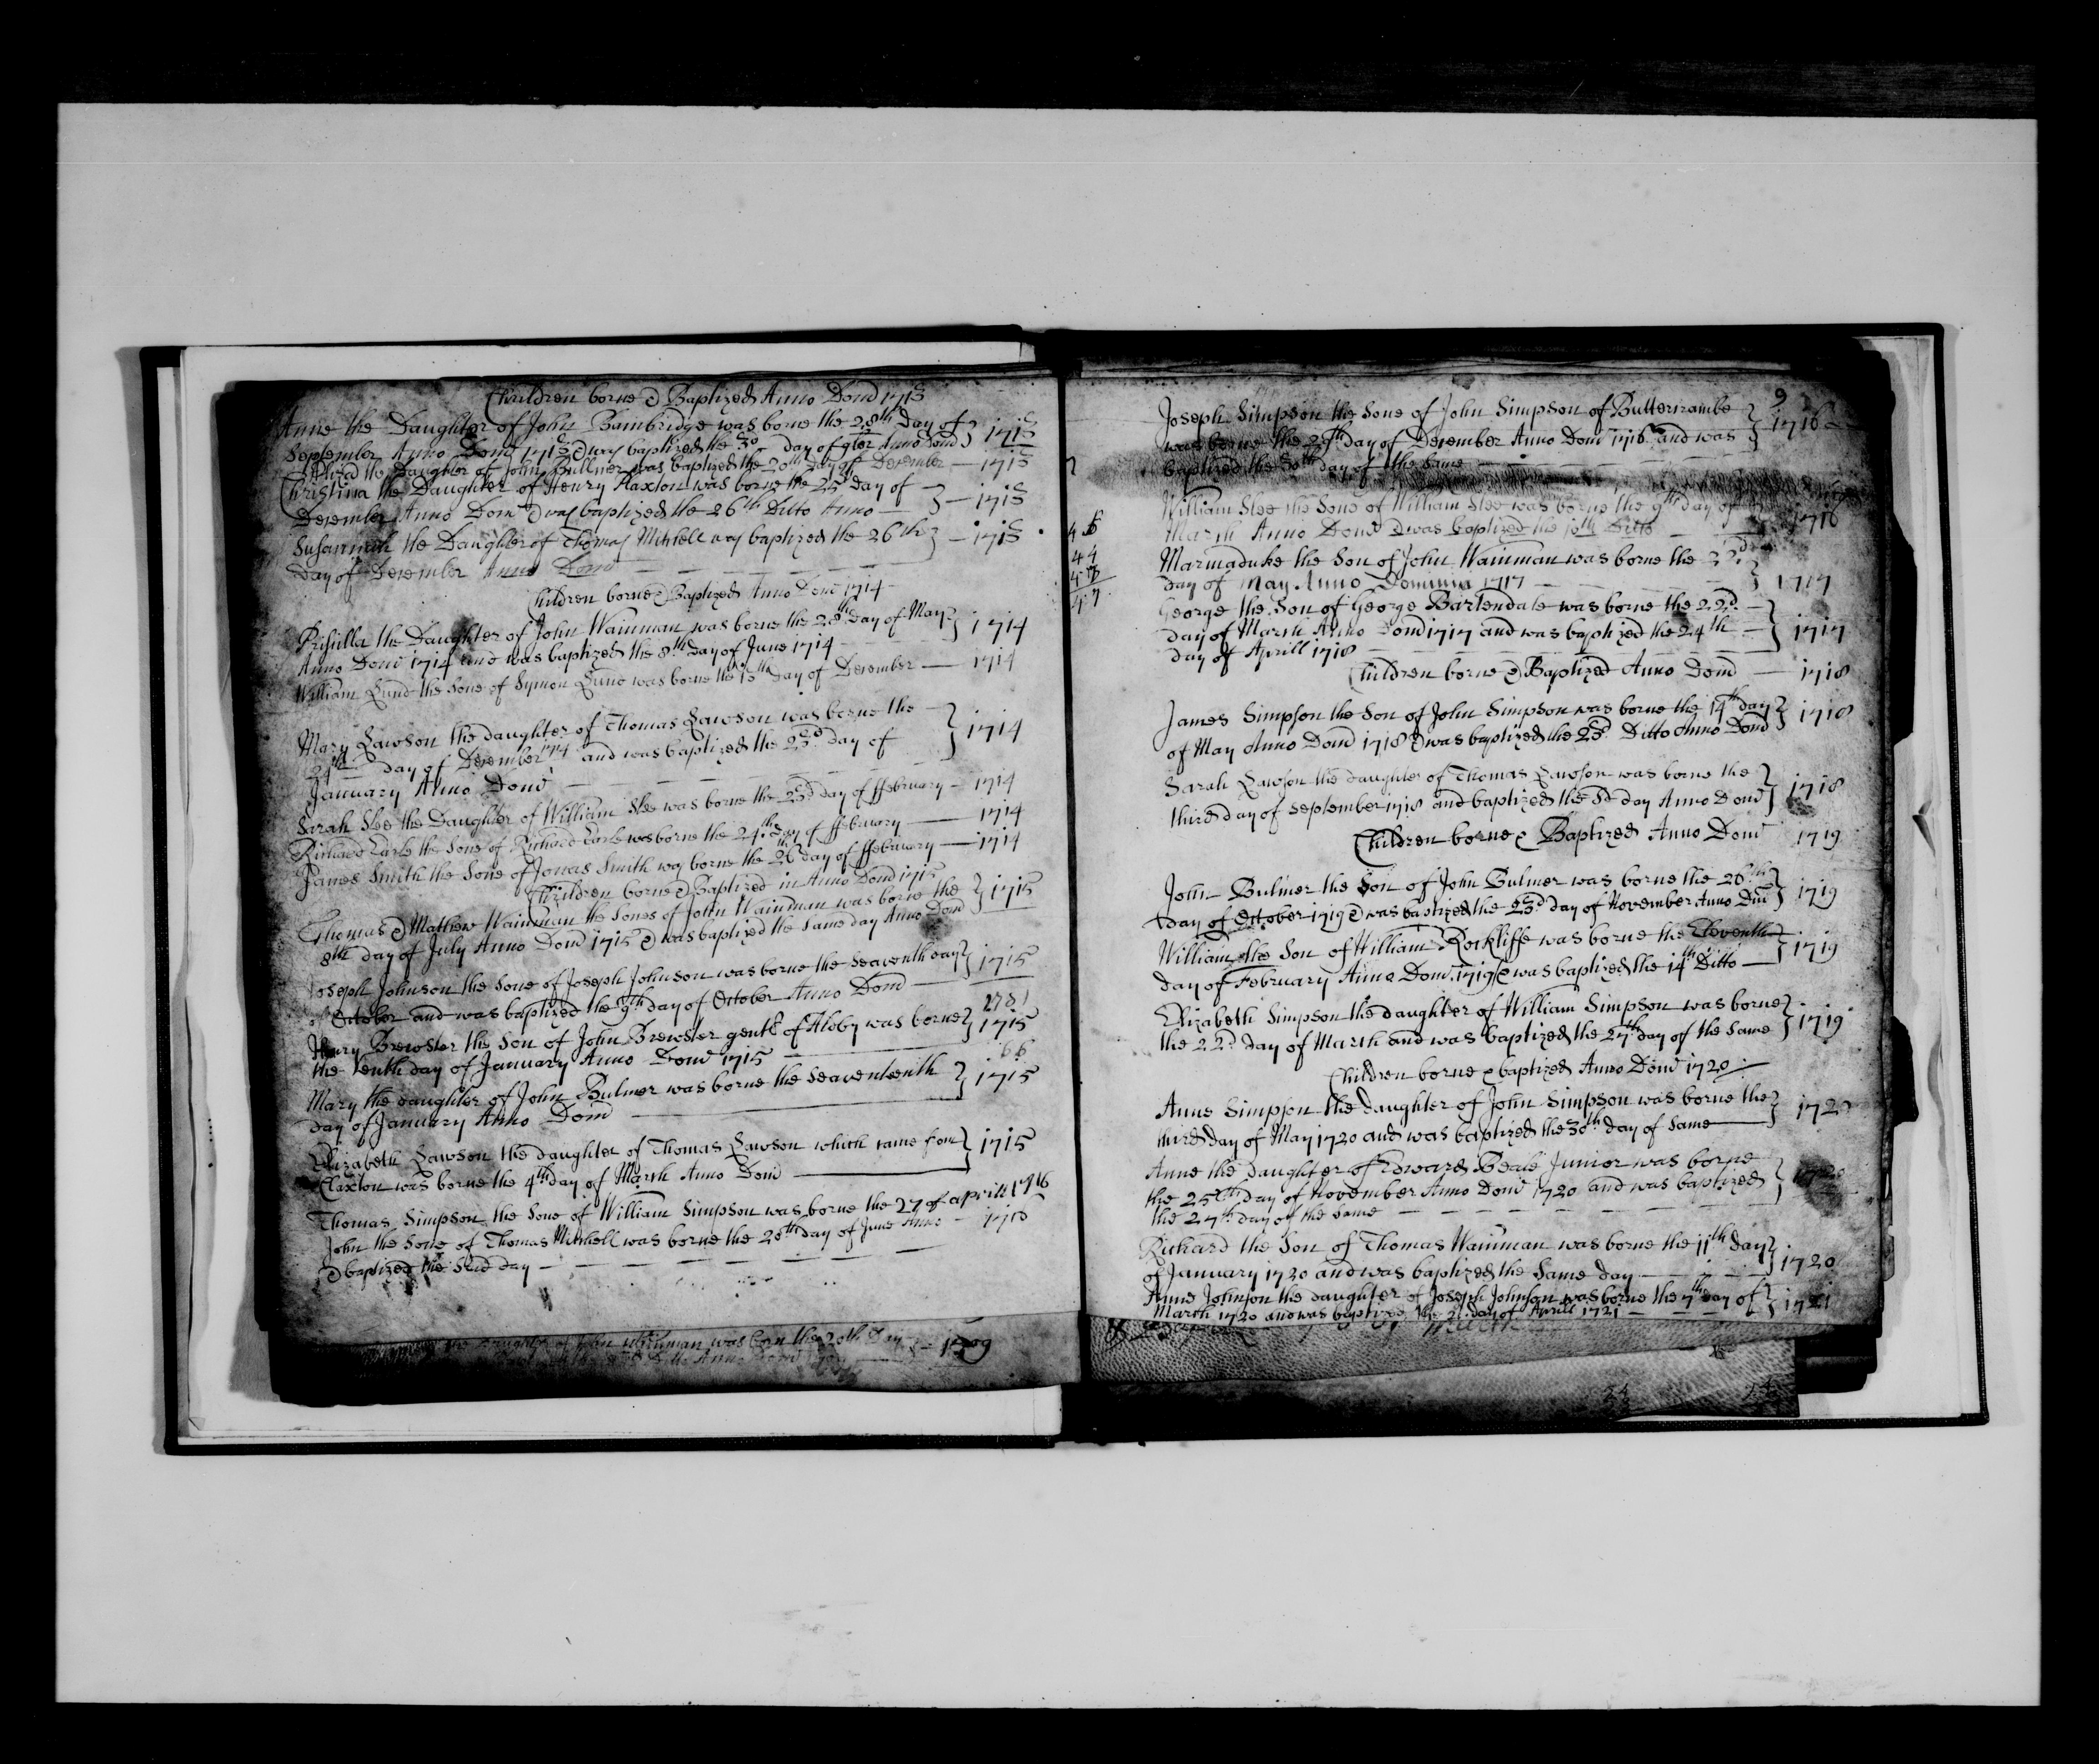 Children borne & Baptized Anno Domi 1713
Anne the Daughter of John Bambridge was borne the 28th Day of
September Anno Domi 1713 & was baptized the 30 day of 9ber Anno Domi } 1713
the Daughter of John Bullmer was baptized the 20th day of December — 1713
Christina the Daughter of Henry Flaxton was borne the 25 day of
December Anno Domi & was baptized the 26th Ditto Anno — } — 1713
Susannah the Daughter of Thomas Mithell was baptized the 26th } — 1713
day of December Anno Domi
Children borne & Baptized Anno Domi 1714
Prisilla the Daughter of John Wainman was borne the 28th day of May
Anno Domi 1714 and was baptized the 8th day of June 1714 } 1714
William Lund the Sone of Symon Lund was borne the day of December — 1714
Mary Lawson the daughter of Thomas Lawson was borne the
24th day of December 1714 and was baptized the 23d day of } 1714
January Anno Domi
Sarah Slee the Daughter of William Slee was borne the 23d day of ffebruary — 1714
Richard Earle the Sone of Richard Earle was borne the 24th day of ffebruary — 1714
James Smith the Sone of Jonas Smith was borne the 26th day of ffebruary — 1714
Children borne & Baptized in Anno Domi 1715
Thomas & Mathew Wainman the Sones of John Wainman was borne the } 1715
8th day of July Anno Domi 1715 & was baptized the same day Anno Domi
Joseph Johnson the Sone of Joseph Johnson was borne the seaventh day } 1715
of October and was baptized the 9th day of October Anno Domi
Henry Brewster the Son of John Brewster gent of Aldby was borne } 1715
the tenth day of January Anno Domi 1715
Mary the daughter of John Bulmer was borne the seaventeenth } 1715
day of January Anno Domi
Elizabeth Lawson the daughter of Thomas Lawson which came from } 1715
Claxton was borne the 4th day of March Anno Domi
Thomas Simpson the Sone of William Simpson was borne the 27 of aprill 1716
John the Sone of Thomas Mithell was borne the 28th day of June Anno — 1716
& baptized the said day
the daughter of John Whinman was born the 20th Day
9
Joseph Simpson the Sone of John Simpson of Buttercrambe
was borne the 29th day of December Anno Domi 1716 and was } 1716
baptized the 30th day of the same
William Slee the Sone of William Slee was borne the 9th day of
March Anno Domi & was baptized the 10th Ditto 1716
Marmaduke the Son of John Wainman was borne the 22d
day of May Anno Dominni 1717 } 1717
George the Son of George Bartendale was borne the 22d
day of March Anno Domi 1717 and was baptized the 24th } 1717
day of Aprill 1718
Children borne & Baptized Anno Domi — 1718
James Simpson the Son of John Simpson was borne the 14th day } 1718
of May Anno Domi 1718 & was baptized the 23d Ditto Anno Domi
Sarah Lawson the daughter of Thomas Lawson was borne the } 1718
third day of September 1718 and baptized the 3d day Anno Domi
Children borne & Baptized Anno Domi 1719
John Bulmer the Son of John Bulmer was borne the 26th } 1719
day of October 1719 & was baptized the 23d day of November Anno Dm
William the Son of William Rockliffe was borne the Eleventh } 1719
day of February Anno Domi 1719 & was baptized the 14th Ditto
Elizabeth Simpson the daughter of William Simpson was borne } 1719
the 22d day of March and was baptized the 27th day of the same
Children borne & baptized Anno Domi 1720
Anne Simpson the daughter of John Simpson was borne the } 1720
third day of May 1720 and was baptized the 30th day of same
Anne the daughter of Edward Beale Junior was borne
the 25th day of November Anno Domi 1720 and was baptized } 1720
the 27th day of the same
Richard the Son of Thomas Wainman was borne the 11th day } 1720
of January 1720 and was baptized the same day
Anne Johnson the daughter of Joseph Johnson was borne the 7th day of } 1721
March 1720 and was baptized the 2d day of Aprill 1721